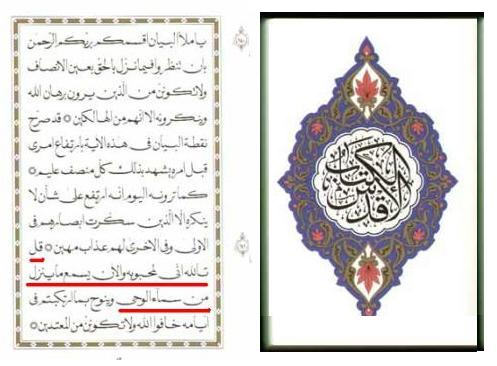 يا ملأ البيان اقسمكم بربّكم الرّحمن
بان تنظروا فيما نزّل بالحقّ بعين الانصاف
ولا تكوننّ من الّذين يرون برهان الله
وينكرونه الا انّهم من الهالكين ۞ قد صرّح
نقطة البيان فى هذه الاية بارتفاع امرى
قبل امره يشهد بذلك كلّ منصف عليم ۞
كما ترونه اليوم انّه ارتفع على شأن لا
ينكره الّا الّذين سكّرت ابصارهم فى
الاولى وفى الاخرى لهم عذاب مهين ۞ قل
تالله انّى لمحبوبه والان يسمع ما ينزل
من سمآء الوحى وينوح بما ارتكبتم فى
ايّامه خافوا الله ولا تكوننّ من المعتدين ۞
الكتاب الاقدس